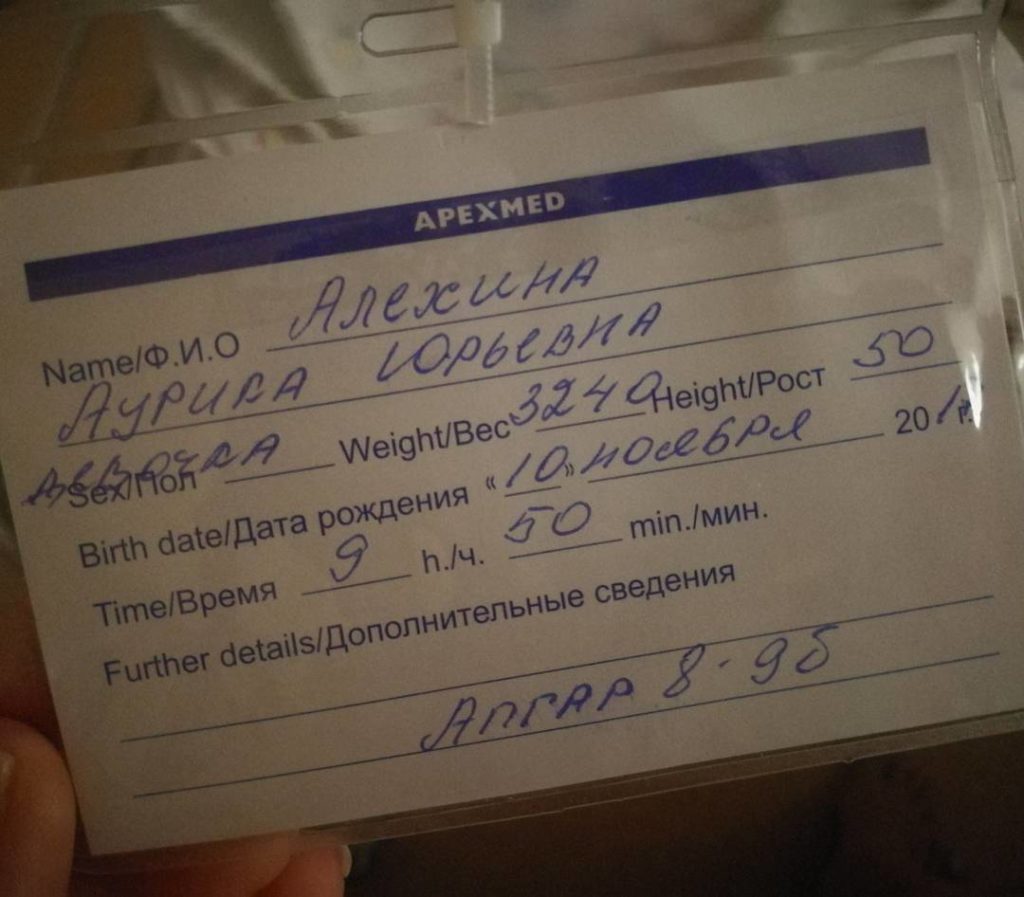 APEXMED
Name/Ф.И.О Алехина
Аурика Юрьевна
Sex/Пол девочка Weight/Вес 3240 Height/Рост 50
Birth date/Дата рождения «10» ноября 20 г.
Time/Время 9 h./ч. 50 min./мин.
Further details/Дополнительные сведения
Апгар 8-9б